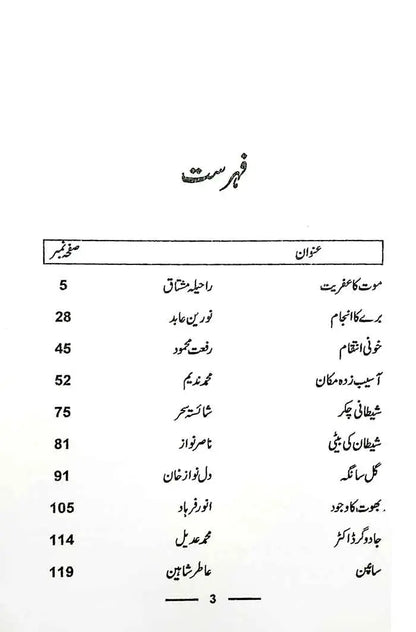 فہرست
عنوان صفحہ نمبر
موت کا عفریت راحیلہ مشتاق 5
برے کا انجام نورین عابد 28
خونی انتقام رفعت محمود 45
آسیب زدہ مکان محمد ندیم 52
شیطانی چکر شائستہ سحر 75
شیطان کی بیٹی ناصر نواز 81
گل سانگہ دل نواز خان 91
بھوت کا وجود انور فرہاد 105
جادوگر ڈاکٹر محمد عدیل 114
سانپن عاطر شاہین 119
3